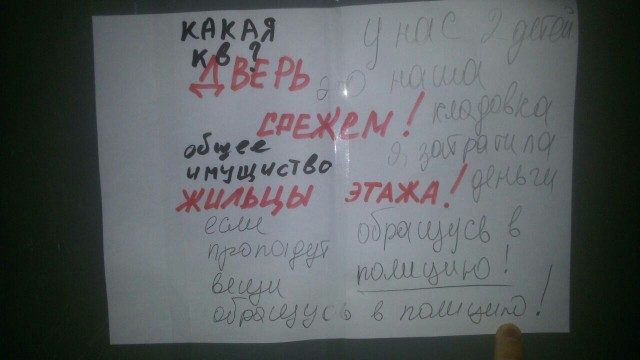 КАКАЯ
КВ?
ДВЕРЬ
СРЕЖЕМ!
общее
имущиство
ЖИЛЬЦЫ ЭТАЖА!
у нас 2 детей
это наша
кладовка
я, затратила
деньги
обращусь в
полицию!
если
пропадут
вещи
обращусь в полицию!